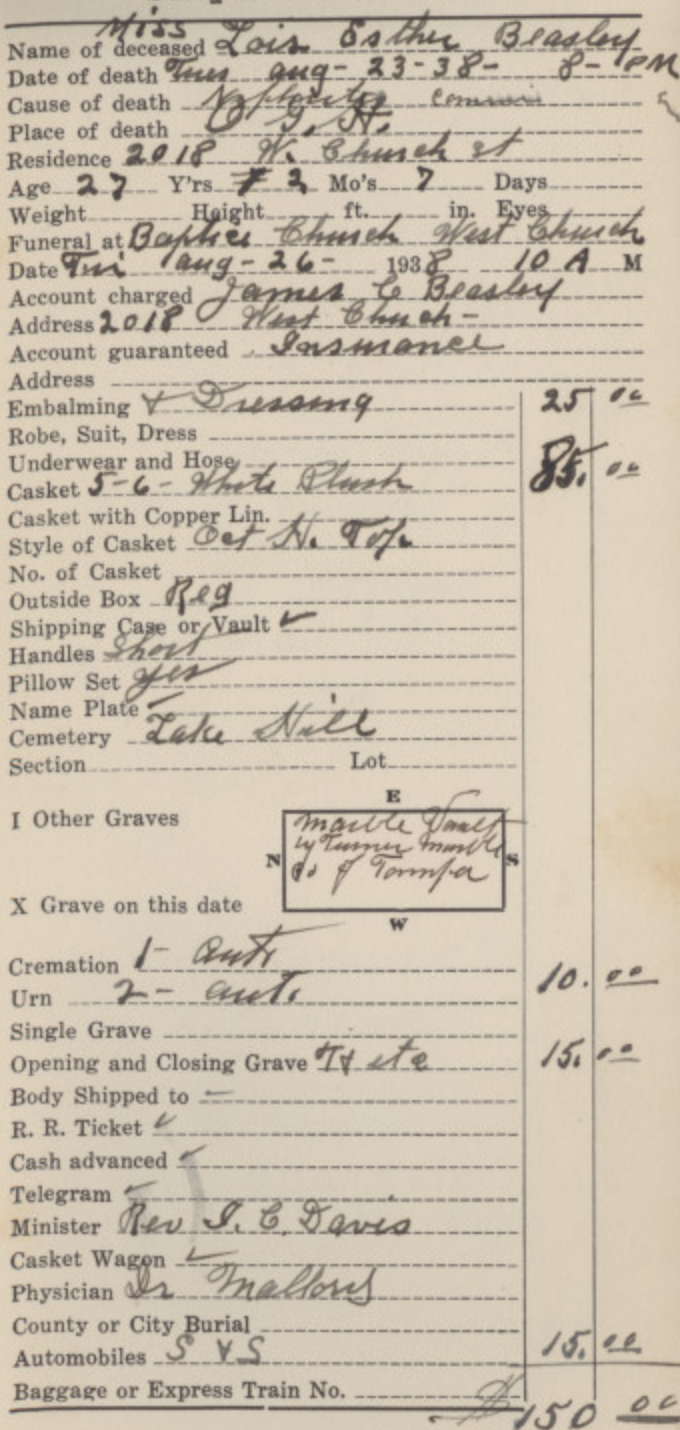 Miss
Name of deceased Lois Esther Beasley
Date of death Tues Aug - 23 - 38 - 8 - PM
Cause of death
Place of death O G. H.
Residence 2018 W. Church st
Age 27 Y'rs 2 Mo's 7 Days
Weight Height ft. in. Eyes
Funeral at Baptist Church West Church
Date Fri Aug - 26 - 1938 10 A M
Account charged James C Beasley
Address 2018 West Church -
Account guaranteed Insurance
Address
Embalming & Dressing 25 00
Robe, Suit, Dress
Underwear and Hose
Casket 5-6 - White Plush 85. 00
Casket with Copper Lin.
Style of Casket Oct H. Top
No. of Casket
Outside Box Reg
Shipping Case or Vault ✓
Handles Short
Pillow Set yes
Name Plate
Cemetery Lake Hill
Section Lot
E
I Other Graves
Marble Vault
by Turner Marble
N S
Co of Tampa
X Grave on this date
W
Cremation 1 - Auto
Urn 2 - Auto 10. 00
Single Grave
Opening and Closing Grave etc 15. 00
Body Shipped to —
R. R. Ticket ✓
Cash advanced ✓
Telegram ✓
Minister Rev I. C. Davis
Casket Wagon ✓
Physician Dr Mallory
County or City Burial
Automobiles S & S 15. 00
Baggage or Express Train No.
$150 00